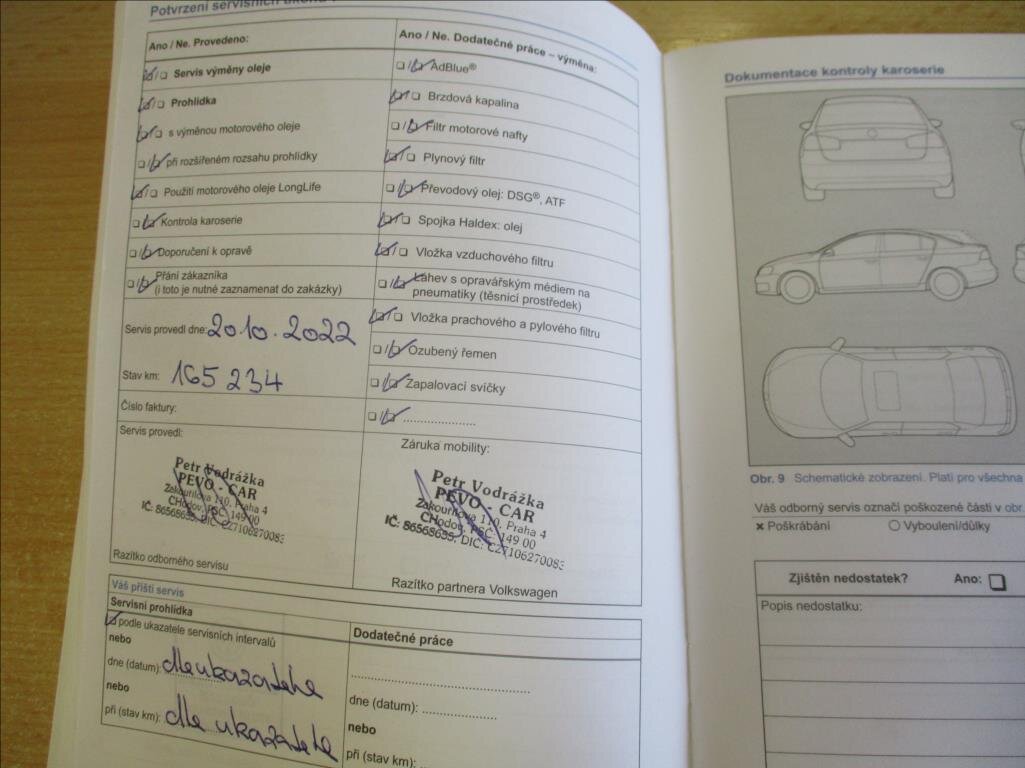 Potvrzení servisních úkonů
Ano / Ne. Provedeno:
☑/☐ Servis výměny oleje
☑/☐ Prohlídka
☑/☐ s výměnou motorového oleje
☐/☑ při rozšířeném rozsahu prohlídky
☑/☐ Použití motorového oleje LongLife
☐/☑ Kontrola karoserie
☐/☑ Doporučení k opravě
☐/☑ Přání zákazníka
(i toto je nutné zaznamenat do zakázky)
Servis provedl dne: 20.10.2022
Stav km: 165 234
Číslo faktury:
Servis provedl:
Petr Vodrážka
PEVO - CAR
Zakouřilova 110, Praha 4
CHodov, PSČ: 149 00
IČ: 86568655, DIČ: CZ7106270083
Razítko odborného servisu
Ano / Ne. Dodatečné práce – výměna:
☐/☑ AdBlue®
☑/☐ Brzdová kapalina
☐/☑ Filtr motorové nafty
☑/☐ Plynový filtr
☐/☑ Převodový olej: DSG®, ATF
☑/☐ Spojka Haldex: olej
☑/☐ Vložka vzduchového filtru
☐/☑ Láhev s opravářským médiem na
pneumatiky (těsnicí prostředek)
☑/☐ Vložka prachového a pylového filtru
☐/☑ Ozubený řemen
☐/☑ Zapalovací svíčky
☐/☑ ......................
Záruka mobility:
Petr Vodrážka
PEVO - CAR
Zakouřilova 110, Praha 4
CHodov, PSČ: 149 00
IČ: 86568655, DIČ: CZ7106270083
Razítko partnera Volkswagen
Váš příští servis
Servisní prohlídka
☑ podle ukazatele servisních intervalů
nebo
dne (datum): dle ukazatele
nebo
při (stav km): dle ukazatele
Dodatečné práce
......................................................
dne (datum): ......................
nebo
při (stav km):
Dokumentace kontroly karoserie
Obr. 9 Schematické zobrazení. Platí pro všechna
Váš odborný servis označí poškozené části v obr.
× Poškrábání ○ Vyboulení/důlky
Zjištěn nedostatek? Ano: ☐
Popis nedostatku: